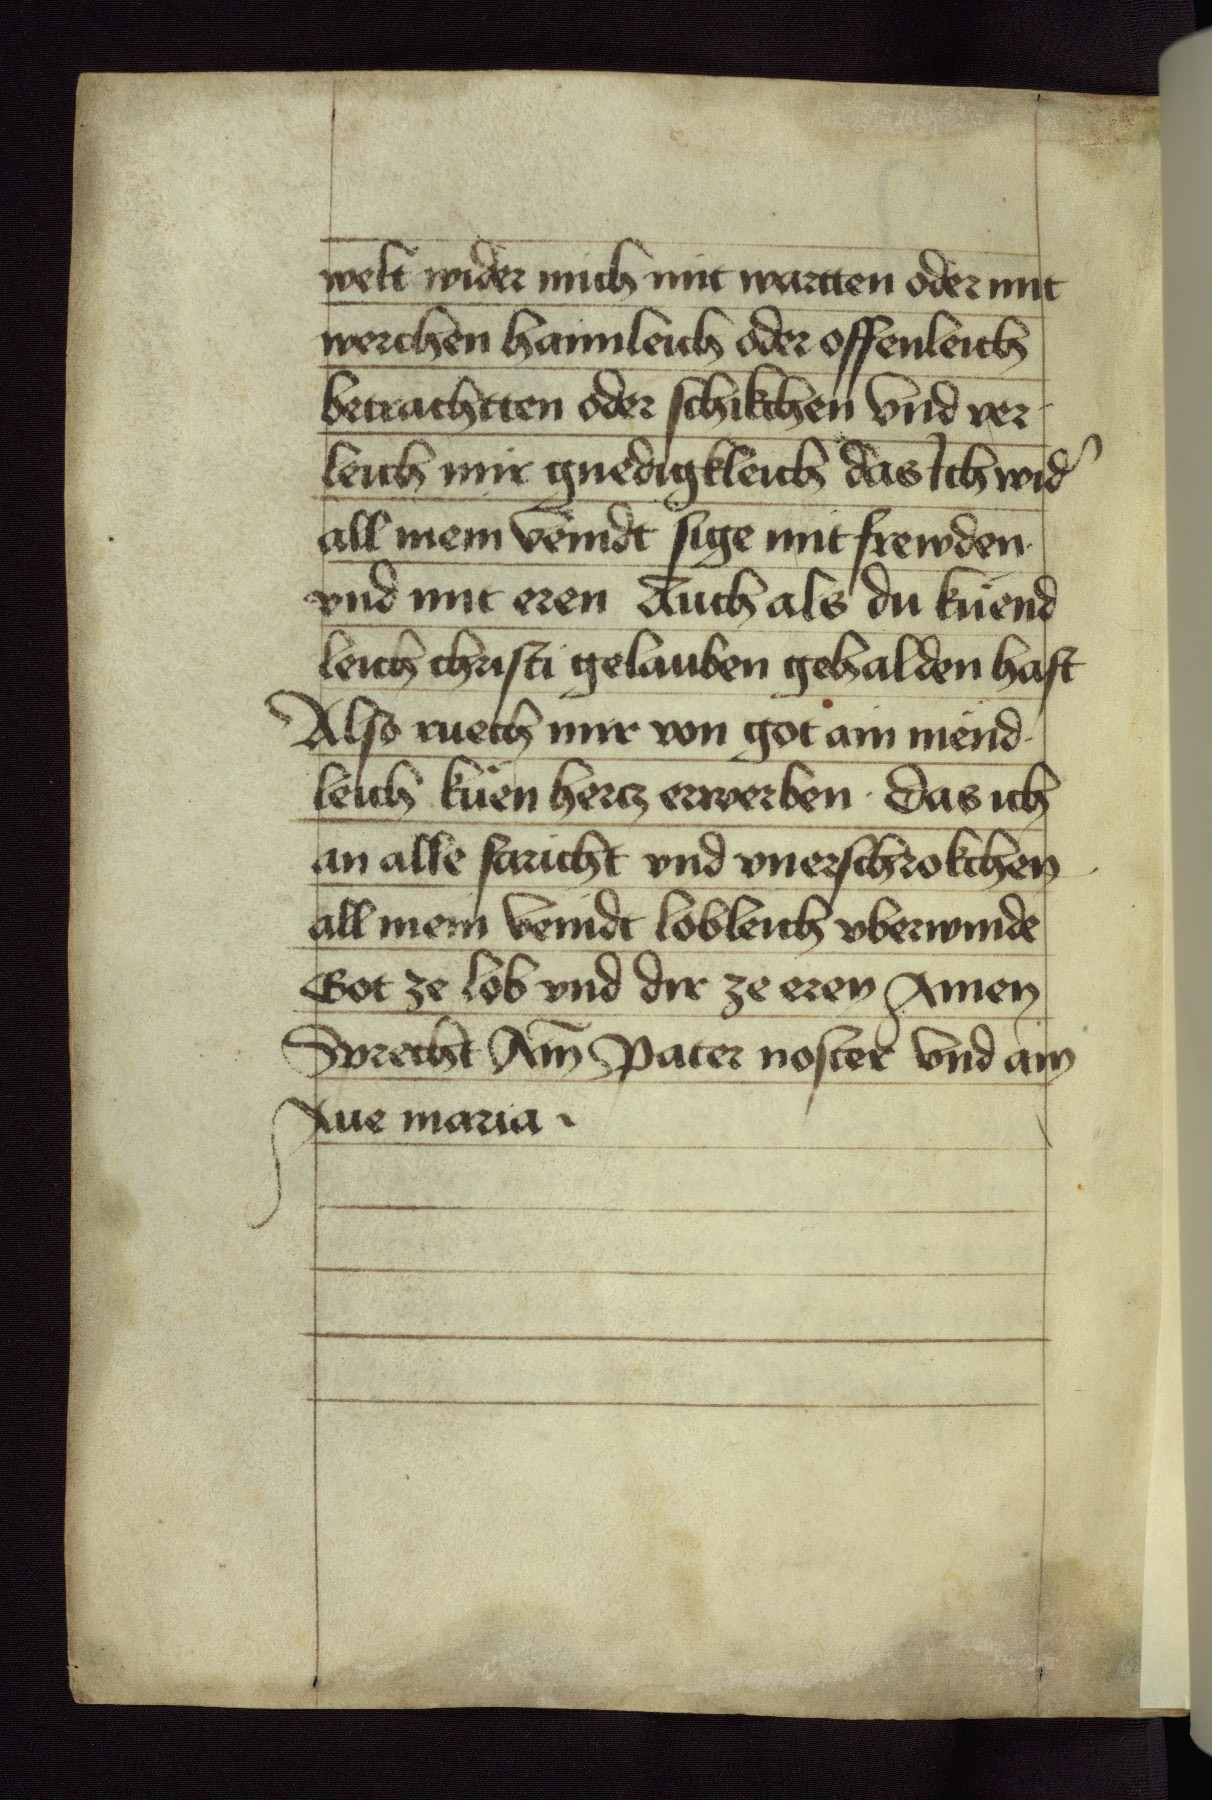 welt wider mich mit wartten oder mit
werchen haimleich oder offenleich
betrachtten oder schikchen vnd ver-
leich mir gnedigkleich das Ich wid'
all mein veindt sige mit frewden
vnd mit eren Auch als du küend
leich christi gelauben gehalden hast
Also ruech mir von got ain mend-
leich küen hercz erwerben · das ich
an alle faricht vnd vnerschrokchen
all mein veindt lobleich vberwinde
Got ze lob vnd dir ze eren Amen
Sprecht Ain Pater noster vnd ain
Aue maria ·